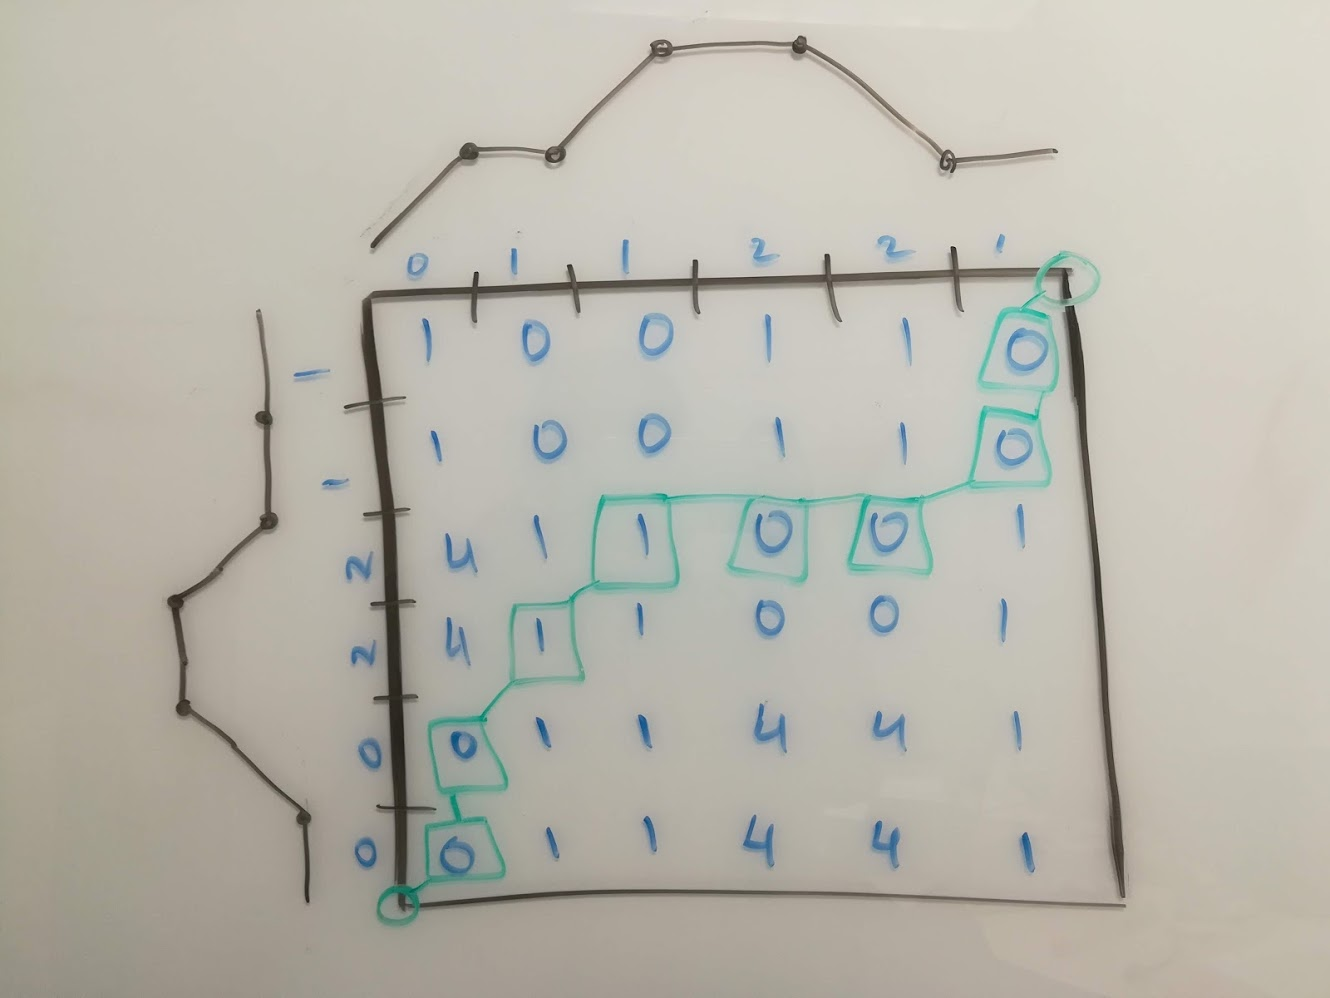 0 1 1 2 2 1
1 1 0 0 1 1 0
1 1 0 0 1 1 0
2 4 1 1 0 0 1
2 4 1 1 0 0 1
0 0 1 1 4 4 1
0 0 1 1 4 4 1